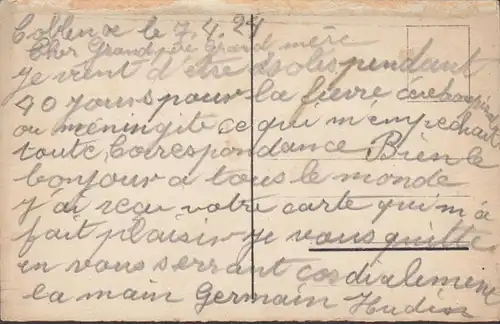 Coblence le 7.4.24
Cher Grand père Grand mère
je vient d'être isolé pendant
40 jours pour la fièvre cérébospinal
ou méningite ce qui m'empechait
toute Correspondance Bien le
bonjour a tous le monde
J'ai reçu votre carte qui m'a
fait plaisir je vous quitte
en vous serrant cordialement
la main Germain